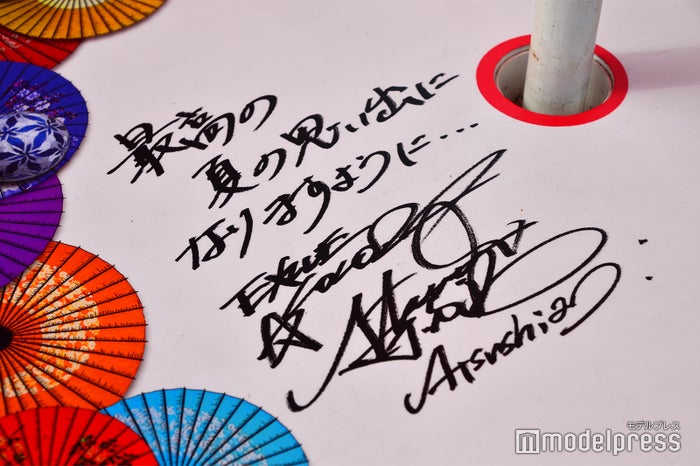 最高の
夏の思い出に
なりますように…
EXILE
Atsushi
モデルプレス
modelpress